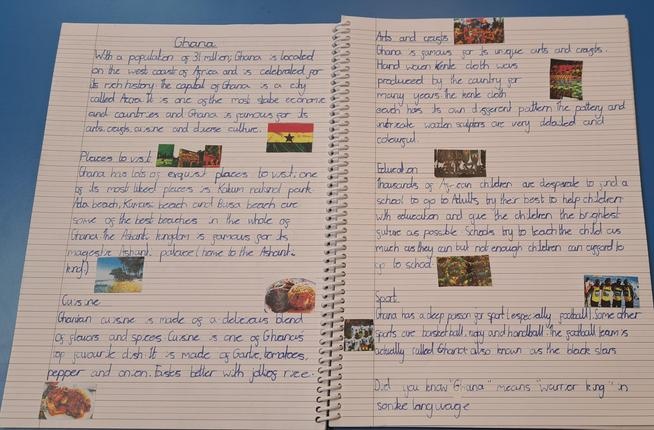 Ghana
With a population of 31 million, Ghana is located
on the west coast of Africa and is celebrated for
its rich history. the capital of Ghana is a city
called Accra. It is one of the most stable economic
and countries and Ghana is famous for its
arts, crafts, cuisine and diverse culture.
Places to visit
Ghana has lots of exquisit places to visit. one
of its most liked places is Kakum national park
Ada beach, Kumasi beach and Busua beach are
some of the best beaches in the whole of
Ghana. the Ashanti kingdom is famous for its
magestic Ashanti palace (home to the Ashanti
king.)
Cuisine
Ghanian cuisine is made of a delecious blend
of flavours and spices. Cuisine is one of Ghana's
top favourite dish. It is made of Garlic, tomatoes,
pepper and onion. Tastes better with jollog rice.
Arts and crafts
Ghana is famous for its unique arts and crafts.
Hand woven Kente cloth was
produced by the country for
many years. the kente cloth
each has its own different pattern. the pottery and
intricate wooden sculptors are very detailed and
colourful.
Education
thousands of African children are desperate to find a
school to go to. Adults try their best to help children
with education and give the children the brightest
future as possible. Schools try to teach the child as
much as they can but not enough children can afford to
go to school.
Sport
Ghana has a deep passion for sport (especially football). Some other
sports are basketball, rugby and handball. The football team is
actually called Ghana also known as the black stars
Did you know "Ghana" means "warrior king" in
soninke language